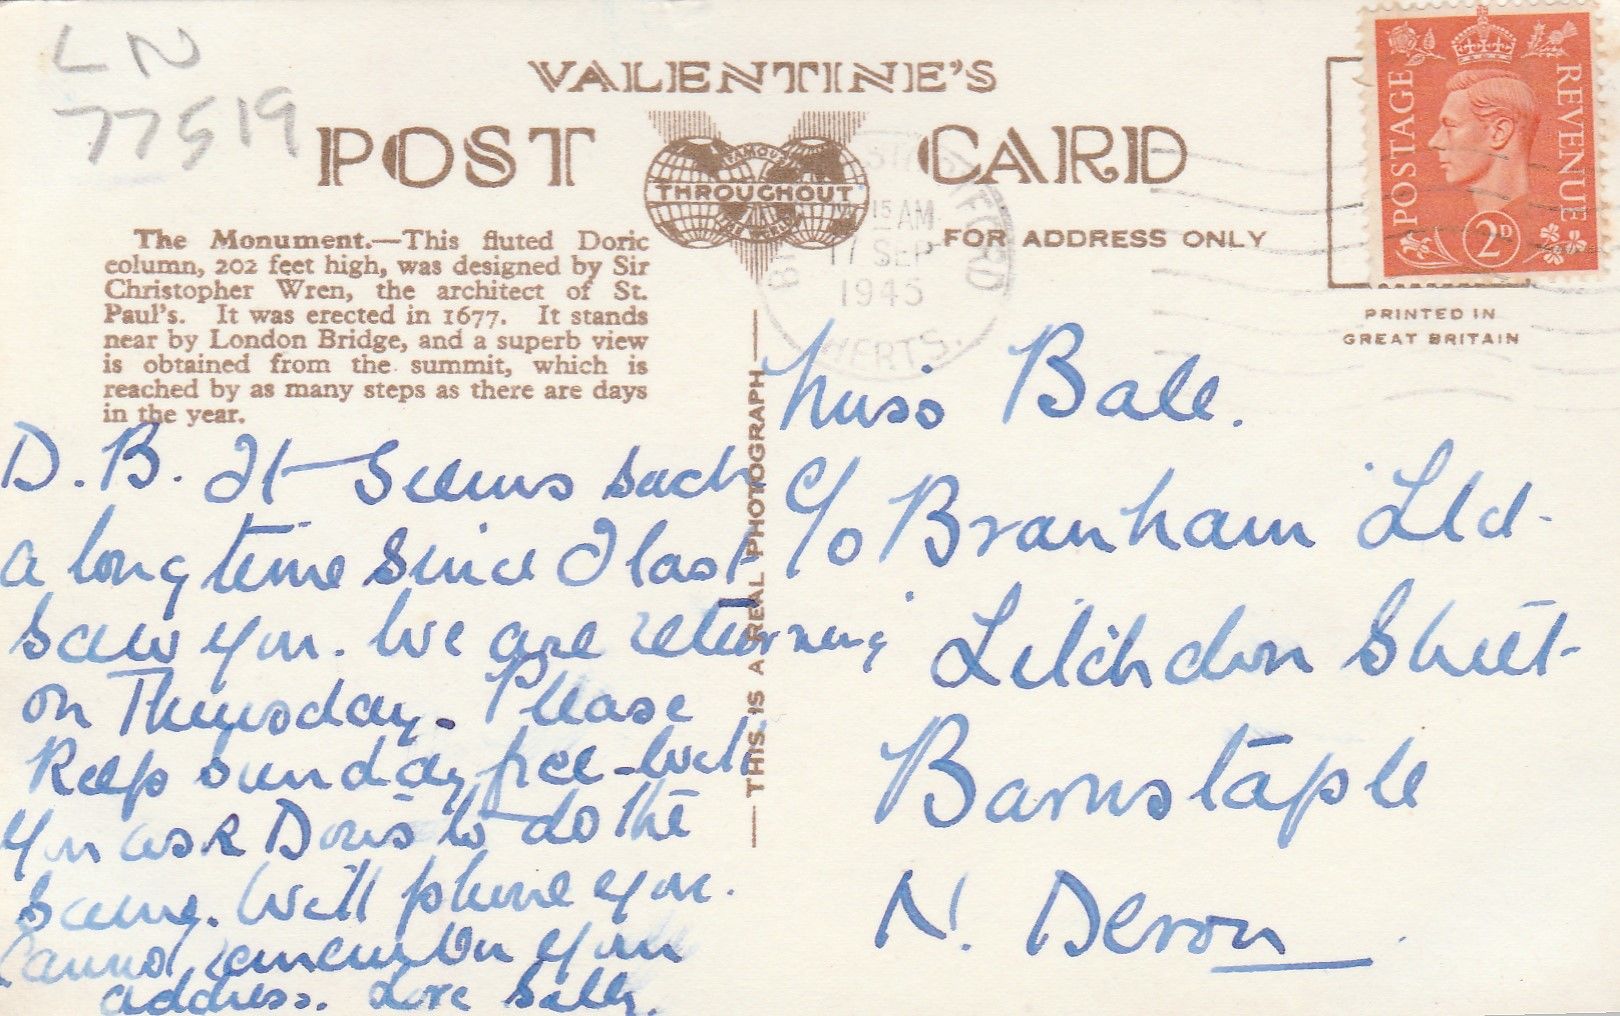 LN
77519
VALENTINE'S
POST CARD
FAMOUS
THROUGHOUT
THE WORLD
FOR ADDRESS ONLY
POSTAGE REVENUE
2D
PRINTED IN
GREAT BRITAIN
15 AM
17 SEP
1945
HERTS.
The Monument.—This fluted Doric
column, 202 feet high, was designed by Sir
Christopher Wren, the architect of St.
Paul's. It was erected in 1677. It stands
near by London Bridge, and a superb view
is obtained from the summit, which is
reached by as many steps as there are days
in the year.
THIS IS A REAL PHOTOGRAPH
D. B. It seems such
a long time since I last
saw you. We are returning
on Thursday. Please
keep Sunday free - will
you ask Doris to do the
same. Will phone you.
Cannot remember your
address. Love Sally.
Miss Bale.
C/o Branham Ltd.
Litchdon Street
Barnstaple
N. Devon